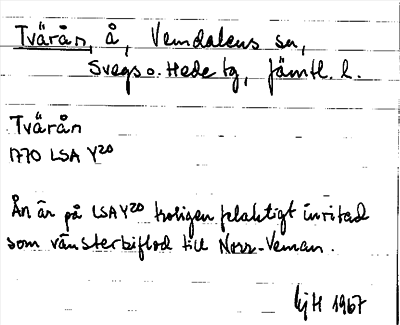 Tvärån, å, Vemdalens sn,
Svegs o. Hede tg, Jämtl. l.
Tvärån
1770 LSA Y20
Ån är på LSA Y20 troligen felaktigt inritad
som vänsterbiflod till Norr-Veman.
HjH 1967